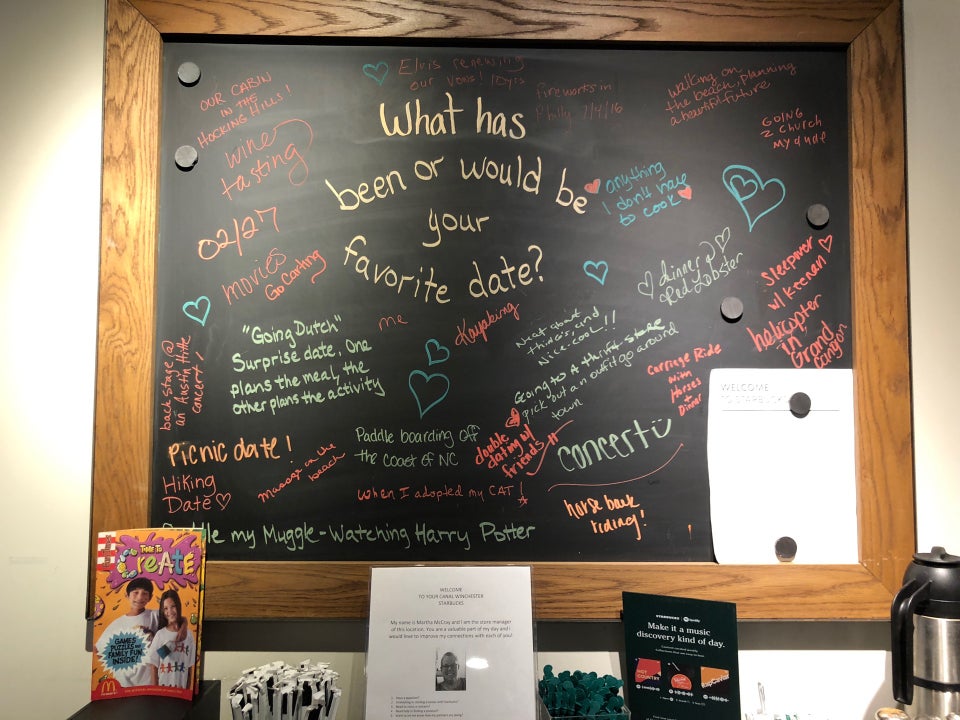 What has
been or would be
your
favorite date?
OUR CABIN
IN THE
HOCKING HILLS!
Elvis renewing
our vows! 10yrs
Fireworks in
Philly 7/4/16
walking on
the beach, planning
a beautiful future
GOING
2 CHURCH
MY dude
wine
tasting
anything
I don't have
to cook
02/27
movies
Go Carting
dinner @
Red Lobster
Sleepover
w/ Keenan
helicopter
in
Grand
Canyon
me
Kayaking
"Going Dutch"
Surprise date, One
plans the meal, the
other plans the activity
Neat about
things, and
Nice-cool!!
Going to A thrift-store
pick out an outfit go around
town
Carriage Ride
with
Horses
+ Dinner
backstage @
an Austin
concert!
Picnic date!
Hiking
Date
massage on the
beach
Paddle boarding off
the coast of NC
double
dating w/
friends
concert
when I adopted my CAT!
horse back
riding!
my Muggle-Watching Harry Potter
WELCOME
TO STARBUCKS
TIME TO
CREATE
GAMES
PUZZLES AND
FAMILY FUN
INSIDE!
WELCOME
TO YOUR CANAL WINCHESTER
STARBUCKS
My name is Martha McCroy and I am the store manager
of this location. You are a valuable part of my day and I
would love to improve my connections with each of you!
STARBUCKS
Make it a music
discovery kind of day.
HOT
COUNTRY
RapCaviar